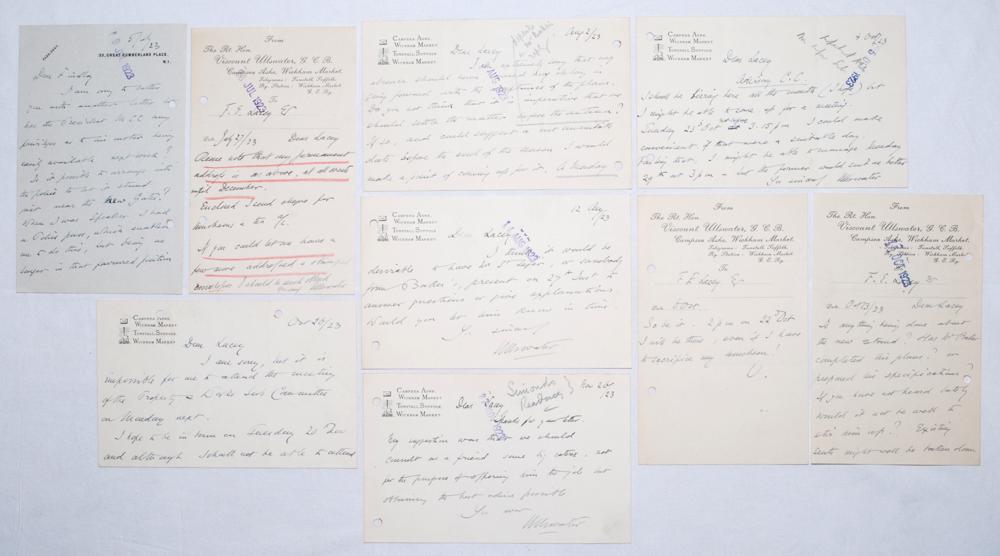 33, GREAT CUMBERLAND PLACE,
W.1.
5/23
Dear F. Lacey
I am sorry to bother
you with another letter
has the President M.C.C. any
privileges as to his motor being
easily available next week?
Is it possible to arrange with
the police to let it stand
just near the new Gates?
When I was Speaker I had
a Police pass, which enabled
me to do this, but being no
longer in that favoured position
From
The Rt. Hon.
Viscount Ullswater, G.C.B.
Campsea Ashe, Wickham Market.
Telegrams: Tunstall, Suffolk.
Ry. Station: Wickham Market.
G.E. Ry.
JUL 1923
To
F. E. Lacey Esq
July 27/23 Dear Lacey
Please note that my permanent
address is as above, at all events
until December.
Enclosed I send cheque for
luncheons & tea a/c.
If you could let me have a
few more addressed & stamped
envelopes I should be much obliged
Ullswater
Campsea Ashe,
Wickham Market
Tunstall Suffolk
Wickham Market
Aug 2/23
Dear Lacey
I am extremely sorry that my
absence should have caused any delay in
going forward with the
Do you not think that it is imperative that we
should settle the matter before the autumn?
If so, and could suggest a not unsuitable
date before the end of the season I would
make a point of coming up for it. A Monday
Campsea Ashe,
Wickham Market
Tunstall Suffolk
Wickham Market
4 Oct/23
Dear Lacey
C.C.
I shall be here all the month
I might be able to come up for a meeting.
Tuesday 23d Oct at 3.15 pm I could make
convenient if that were a suitable day.
Failing that, I might be able to manage Monday
29th at 3 pm - but the former would suit me better
Yrs sincerely Ullswater
Campsea Ashe,
Wickham Market
Tunstall Suffolk
Wickham Market
12 Aug
/23
14 AUG 1923
Dear Lacey
I think it would be
desirable to have Mr or somebody
from Baker's, present on 27th Inst to
answer questions or give explanations.
Would you let him know in time.
Yrs sincerely
Ullswater
From
The Rt. Hon.
Viscount Ullswater, G.C.B.
Campsea Ashe, Wickham Market.
Telegrams: Tunstall, Suffolk.
Ry. Station: Wickham Market.
G.E. Ry.
F E Lacey Esq
8 Oct.
So be it. 2 pm on 22d Oct
I will be there, even if I have
to sacrifice my luncheon!
U.
From
The Rt. Hon.
Viscount Ullswater, G.C.B.
Campsea Ashe, Wickham Market.
Telegrams: Tunstall, Suffolk.
Ry. Station: Wickham Market.
G.E. Ry.
OCT 1923
F. E. Lacey Esq
Oct 13/23 Dear Lacey
Is anything being done about
the new stand? Has Mr Baker
completed his plans? or
prepared his specifications?
If you have not heard lately
would it not be well to
stir him up? Existing
seats might well be broken down
Campsea Ashe,
Wickham Market
Tunstall Suffolk
Wickham Market
Oct 26/23
Dear Lacey
I am sorry, but it is
impossible for me to attend the meeting
of the Property & Works Sub Committee
on Monday next.
I hope to be in town on Tuesday 20 Nov
and although I shall not be able to attend
Campsea Ashe,
Wickham Market
Tunstall Suffolk
Wickham Market
Simonds
Reading
Nov 26
/23
Dear Lacey
Thanks for your letter.
My suggestion was that we should
consult as a friend some big caterer, not
for the purpose of offering him the job but
obtaining the best advice possible
Yrs ever
Ullswater